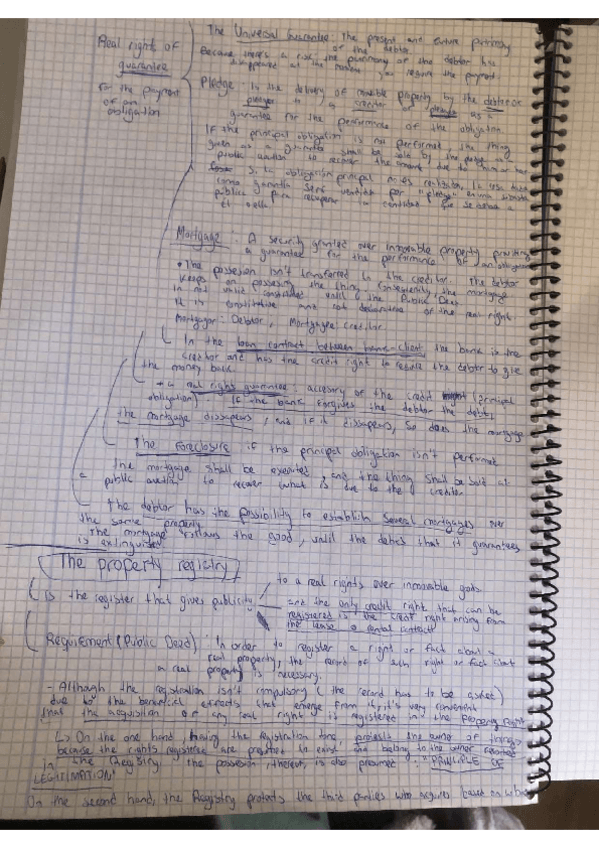 Real rights of
guarantee
for the payment
of an
obligation
The Universal Guarantee: The present and future patrimony
of the debtor
Because there's a risk the patrimony of the debtor has
disappeared at the moment you require the payment
Pledge: Is the delivery of movable property by the debtor or
pledger to a creditor or pledgee as a
guarantee for the performance of the obligation.
If the principal obligation is not performed, the thing
given as a guarantee shall be sold by the pledgee in
public auction to recover the amount due to him or her
Si la obligación principal no es realizada, la cosa dada
como garantía será vendida por "pledgee" en una subasta
pública para recuperar la cantidad que se debía a
él o ella
Mortgage: A security granted over immovable property providing
a guarantee for the performance of an obligation
• The possesion isn't transfered to the creditor. The debtor
keeps on possesing the thing. Consequently the mortgage
is not valid constituted until the Public Deed
It is constitutive and not declarative of the real right.
Mortgagor: Debtor, Mortgagee: creditor
In the loan contract between bank-client, the bank is the
creditor and has the credit right to require the debtor to give
the money back.
real right guarantee: accesory of the credit (principal
obligation). If the bank forgives the debtor the debt,
the mortgage dissapears, and if it dissapears, so does the mortgage
The Foreclosure if the principal obligation isn't performed
the mortgage shall be executed, and the thing shall be sold at
public auction to recover what is due to the creditor
The debtor has the possibility to establish several mortgages over
the same property.
The mortgage follows the good, until the debts that it guarantees
is extinguised
The property registry
Is the register that gives publicity
to a real rights over inmovable goods
and the only credit right that can be
registered is the credit right arising from
the lease or rental contract
Requirement (Public Deed) In order to register a right or fact about a
real property, the record of such right or fact about
a real property is necessary.
- Although the registration isn't compulsory (the record has to be asked)
due to the beneficial effects that emerge from it, it's very convenient
that the acquisition of any real right is registered in the Property Registry
↳ On the one hand, having the registration done protects the owner of things
because the rights registered are presumed to exist and belong to the owner recorded
in the Registry. The possesion, thereto, is also presumed: "PRINCIPLE OF
LEGITIMATION"
On the second hand, the Registry protects the third parties who acquires based on what